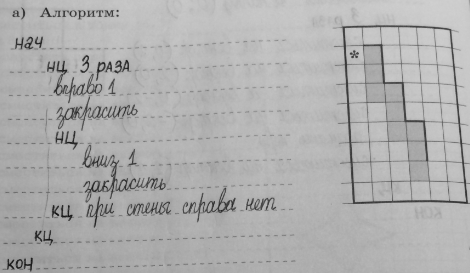 а) Алгоритм:
нач
нц 3 раза
вправо 1
закрасить
нц
вниз 1
закрасить
кц при стены справа нет
кц
кон
*